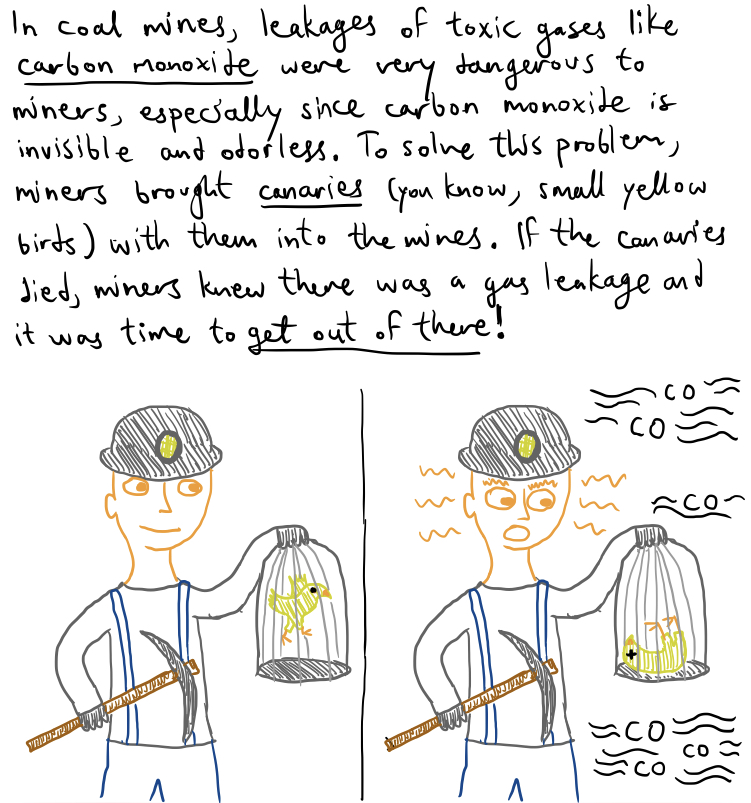 In coal mines, leakages of toxic gases like
carbon monoxide were very dangerous to
miners, especially since carbon monoxide is
invisible and odorless. To solve this problem,
miners brought canaries (you know, small yellow
birds) with them into the mines. If the canaries
died, miners knew there was a gas leakage and
it was time to get out of there!
CO
CO
CO
CO
CO
CO